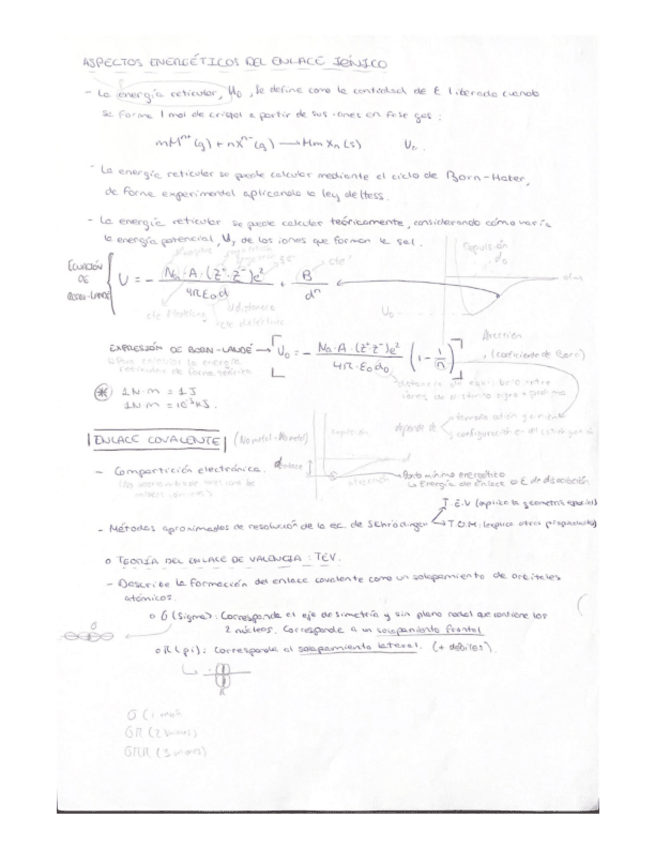 ASPECTOS ENERGÉTICOS DEL ENLACE IÓNICO
- La energía reticular, U0, se define como la cantidad de E liberada cuando
se forma 1 mol de cristal a partir de sus iones en fase gas:
mMⁿ⁺(g) + nXⁿ⁻(g) → MmXn(s) U0.
- La energía reticular se puede calcular mediante el ciclo de Born-Haber,
de forma experimental aplicando la ley de Hess.
- La energía reticular se puede calcular teóricamente, considerando cómo varía
la energía potencial, U, de los iones que forman la sal.
repulsión
d0
ECUACIÓN DE BORN-LANDÉ
U = - Na·A·(z⁺·z⁻)e² / 4πε0d + B / dⁿ
cte
distancia
cte dieléctrica
U0
atracción
EXPRESIÓN DE BORN-LANDÉ → [U0 = - Na·A·(z⁺z⁻)e² / 4π·ε0d0 (1 - 1/n)] (coeficiente de Born)
para calcular la energía
reticular de forma teórica
distancia de equilibrio entre
iones de distinto signo
* 1N·m = 1J
1N·m = 10⁻³kJ.
depende de
tamaño catión y anión
configuración
ENLACE COVALENTE (No metal + No metal)
repulsión
d enlace
d
- Compartición electrónica.
atracción
Punto mínimo energético
↳ Energía de enlace o E de disociación
- Métodos aproximados de resolución de la ec. de Schrödinger
T.E.V (explica la geometría espacial)
T.O.M. (explica otras propiedades)
o TEORÍA DEL ENLACE DE VALENCIA: TEV.
- Describe la formación del enlace covalente como un solapamiento de orbitales
atómicos.
o σ (sigma): Corresponde al eje de simetría y sin plano nodal que contiene los
2 núcleos. Corresponde a un solapamiento frontal
σ
o π (pi): Corresponde al solapamiento lateral. (+ débiles).
π
σ (1
σπ (2
σππ (3